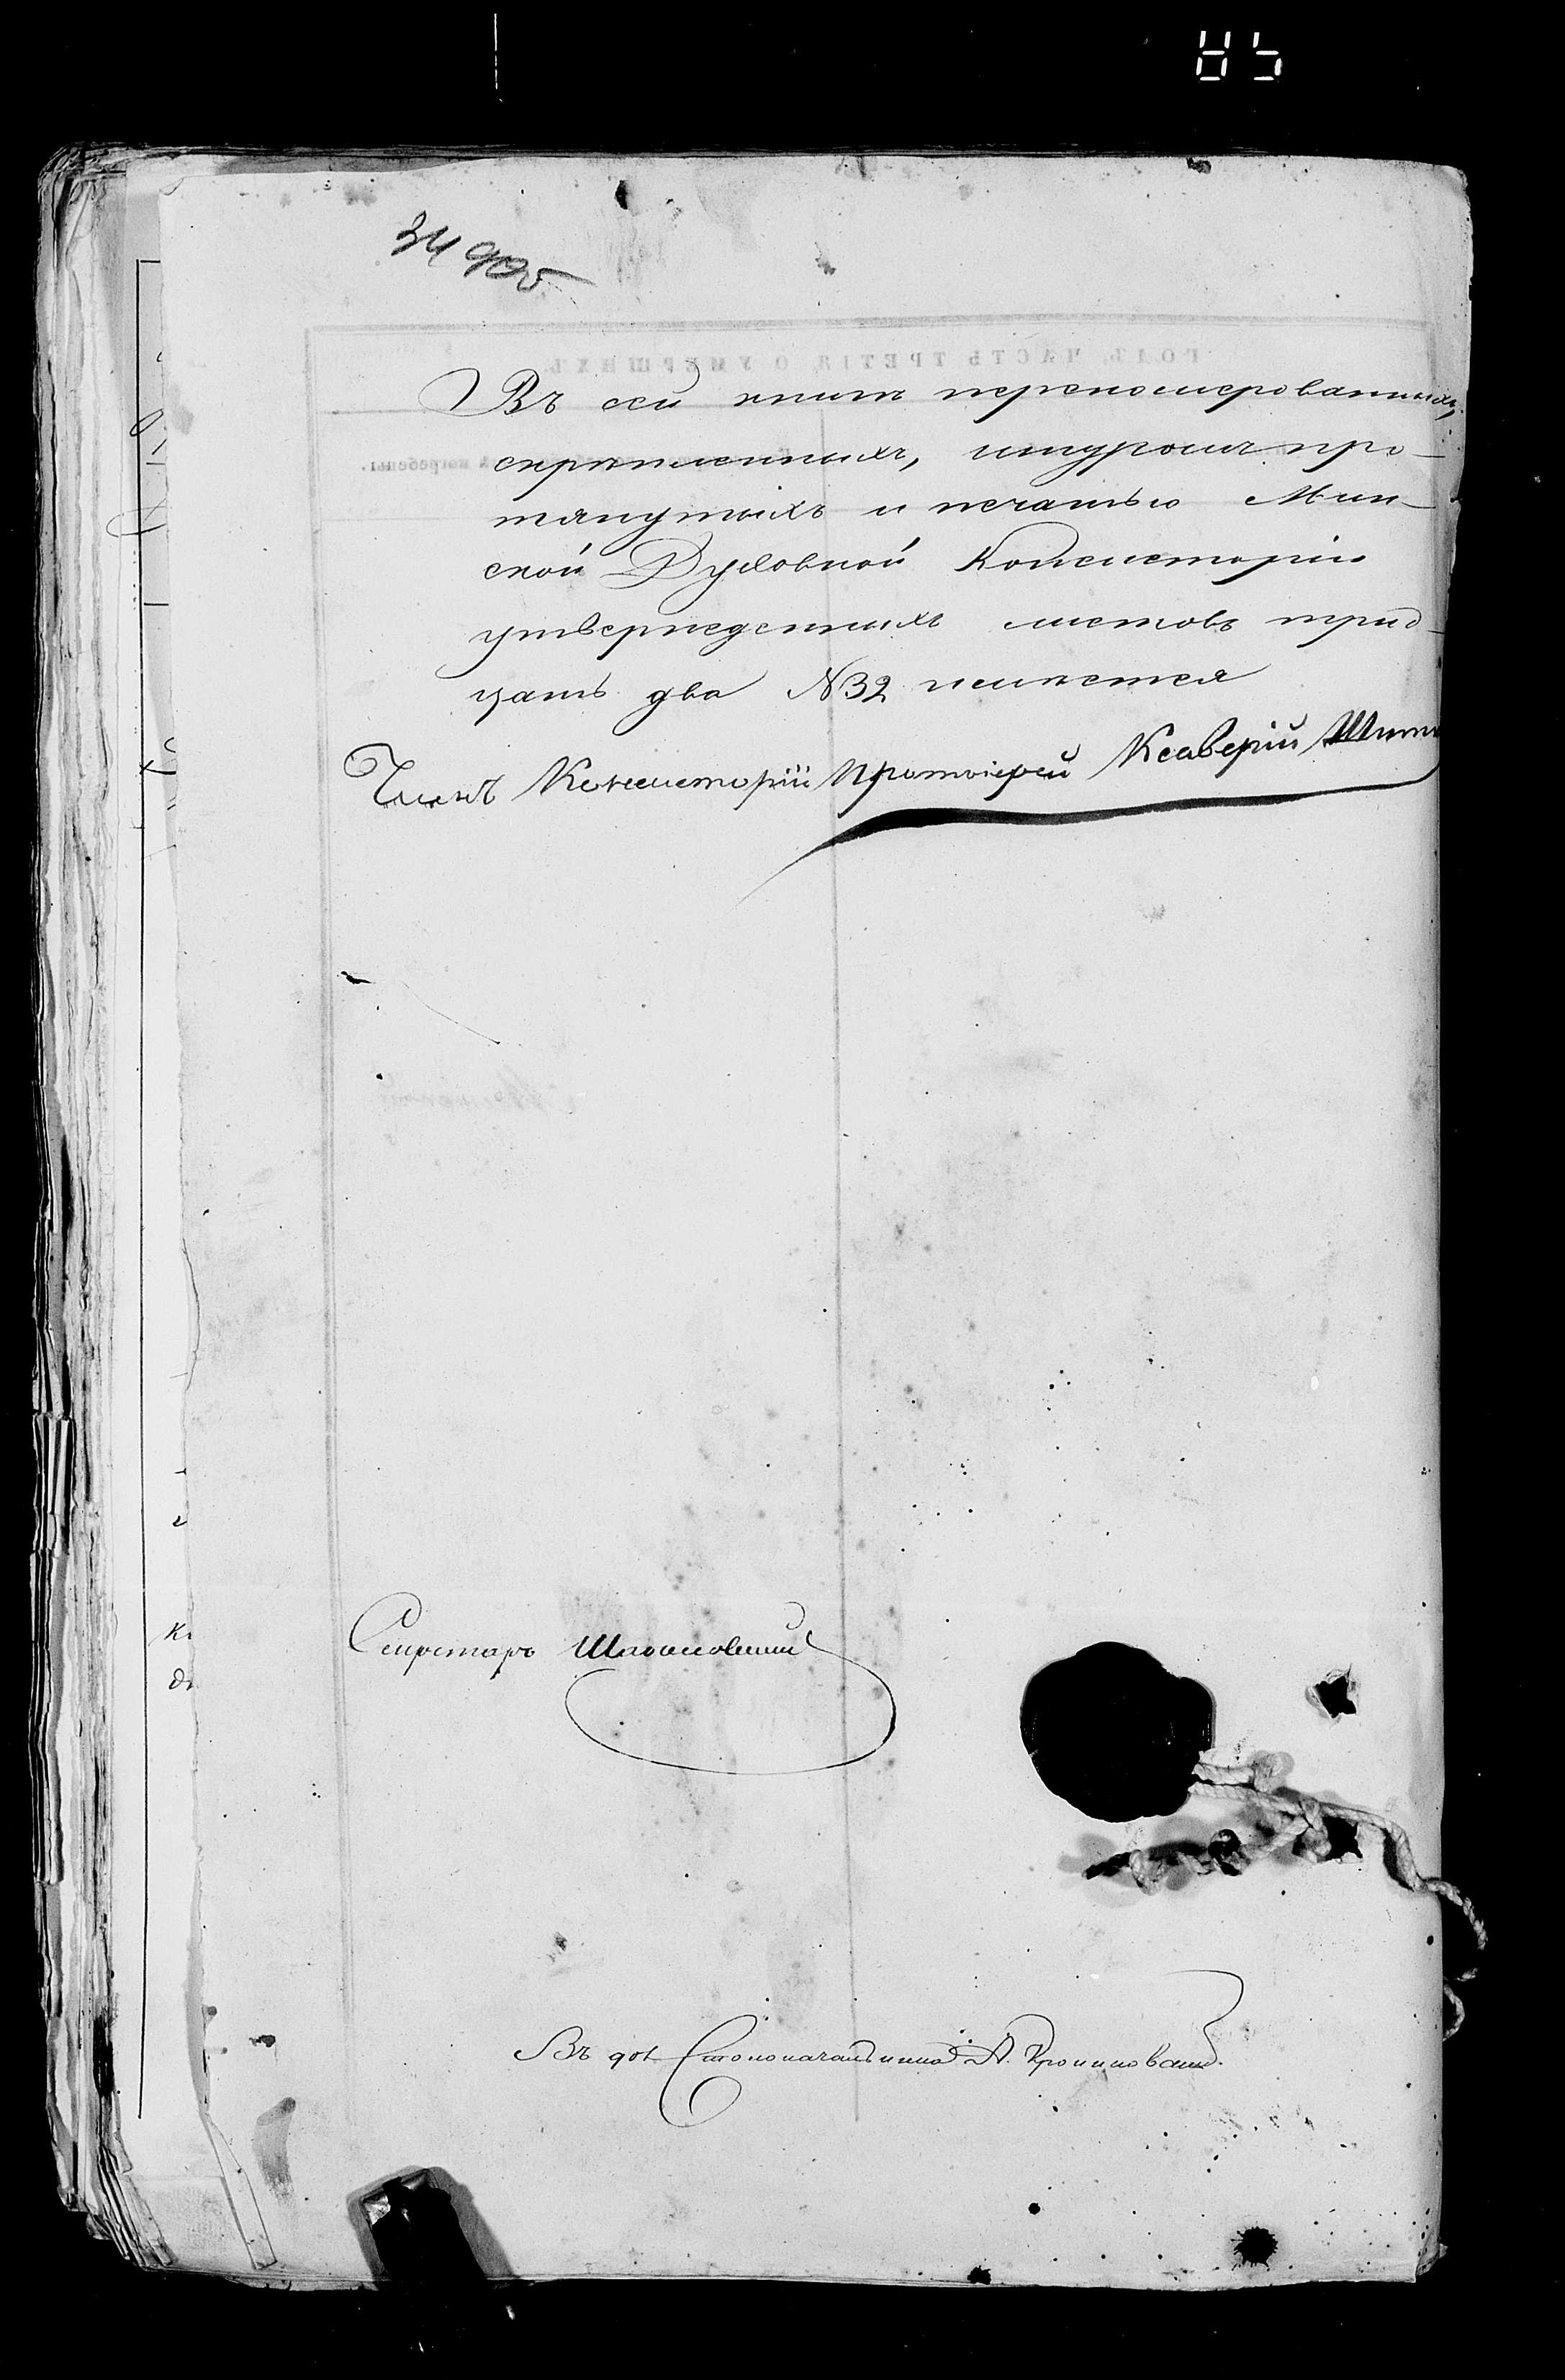 85
34 905
ГОДЪ, ЧАСТЬ ТРЕТІЯ, О УМЕРШИХЪ.
Въ сей книгѣ перенумерованныхъ,
скрѣпленныхъ, шнуромъ про-
тянутыхъ и печатью Мин-
ской Духовной Консисторіи
утвержденныхъ листовъ трид-
цать два №32 числится
Членъ Консисторіи Протоіерей Ксаверій
Секретарь
Въ дол. Столоначальника А.